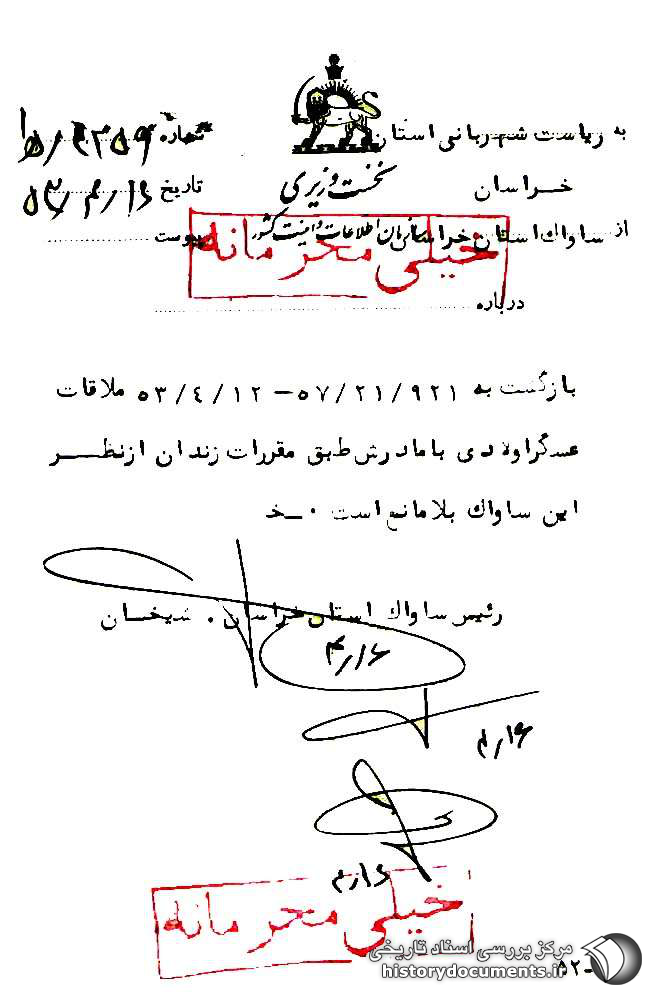 به ریاست شهربانی استان
خراسان
از ساواك استان خراسان
نخست وزیری
سازمان اطلاعات و امنیت کشور
شماره
تاریخ ۵۳/۴/۱۶
پیوست
خیلی محرمانه
درباره
بازگشت به ۵۷/۲۱/۹۲۱-۵۳/٤/۱۲ ملاقات
عسگراولادی با مادرش طبق مقررات زندان ازنظر
این ساواك بلامانع است ۰ خ
رئیس ساواك استان خراسان . شیخان
۴/۱۶
۴/۱۶
۴/۱۶
خیلی محرمانه
مرکز بررسی اسناد تاریخی
historydocuments.ir
۵۲